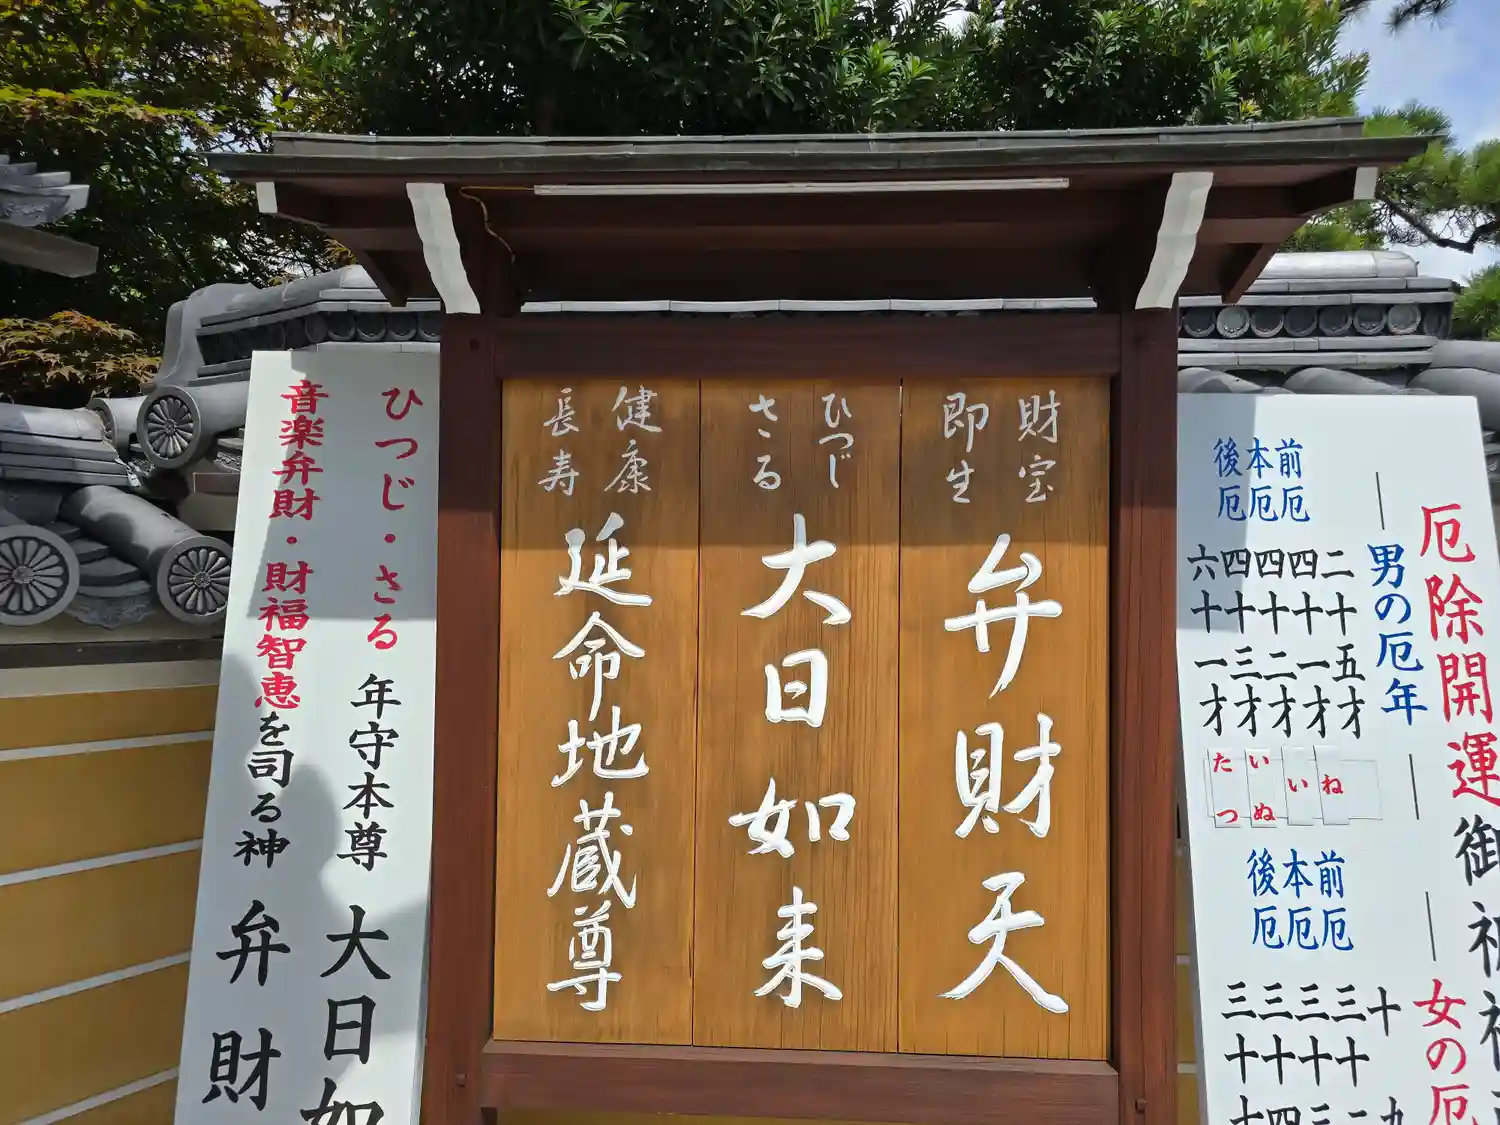 厄除開運御祈
男の厄年
前厄
本厄
後厄
二十五才
四十一才
四十二才
四十三才
六十一才
ね
い
いぬ
たつ
女の厄
前厄
本厄
後厄
十九
三十二
三十三
三十四
三十
財宝
即生
弁財天
ひつじ
さる
大日如来
健康
長寿
延命地蔵尊
ひつじ・さる年守本尊 大日如
音楽弁財・財福智恵を司る神 弁財